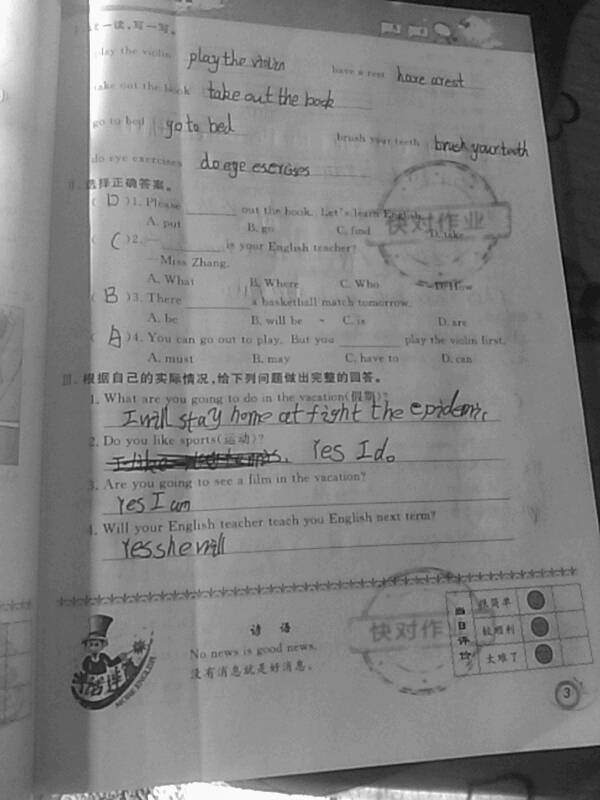 一读,写一写。
play the violin play the violin have a rest have a rest
take out the book take out the book
go to bed go to bed brush your teeth brush your teeth
do eye exercises do eye esercises
Ⅱ. 选择正确答案。
( D )1. Please ______ out the book. Let's learn English.
A. put B. go C. find D. take
( C )2. — ______ is your English teacher?
—Miss Zhang.
A. What B. Where C. Who D. How
( B )3. There ______ a basketball match tomorrow.
A. be B. will be C. is D. are
( A )4. You can go out to play. But you ______ play the violin first.
A. must B. may C. have to D. can
Ⅲ. 根据自己的实际情况,给下列问题做出完整的回答。
1. What are you going to do in the vacation(假期)?
I will stay home at fight the epidemic
2. Do you like sports(运动)?
Yes I do。
3. Are you going to see a film in the vacation?
Yes I am
4. Will your English teacher teach you English next term?
Yes she will
谚 语
No news is good news.
没有消息就是好消息。
MORE ENGLISH
当日评价
很简单
较顺利
太难了
快对作业
快对作
3